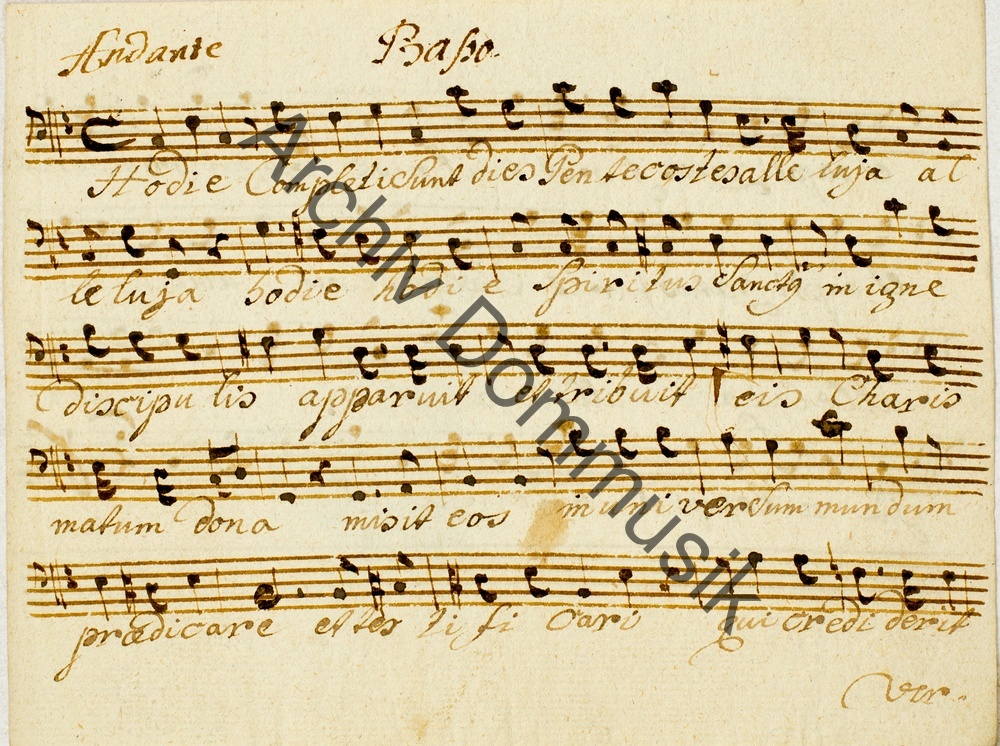 Andante Basso.
Hodie Completi Sunt dies Pentecostes alle luja al
le luja hodie hodi e Spiritus Sanctq in igne
discipu lis apparuit et tribuit eis Charis
matum dona misit eos in uni versum mundum
prædicare et tes ti fi cari qui credi derit
Ver.
Archiv Dommusik